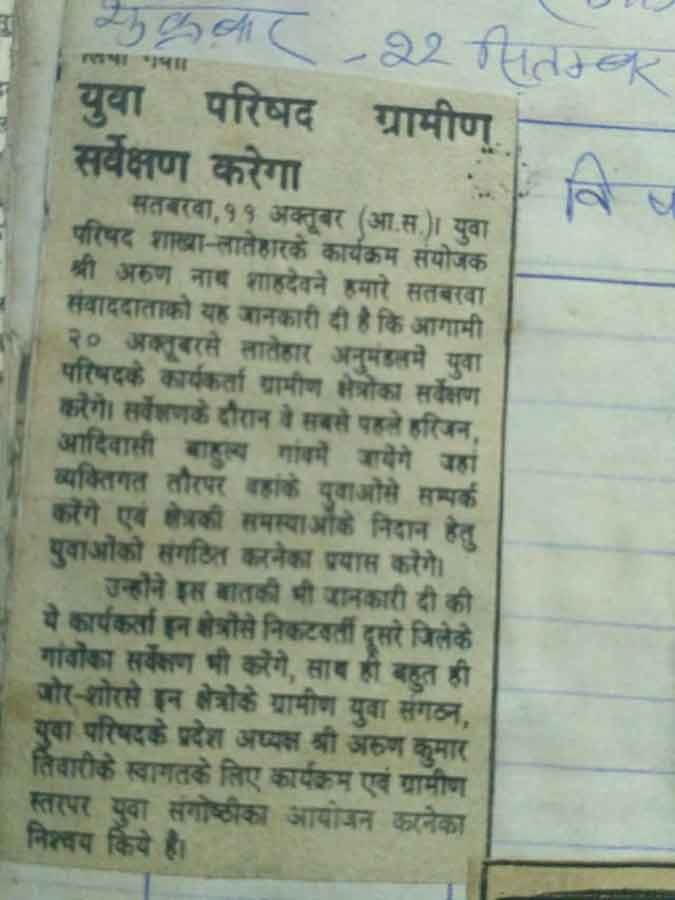 शुक्रवार - २२ सितम्बर
लिया गया।
वि
युवा परिषद ग्रामीण
सर्वेक्षण करेगा
सतबरवा, ११ अक्तूबर (आ.स.)। युवा
परिषद शाखा-लातेहारके कार्यक्रम संयोजक
श्री अरुण नाथ शाहदेवने हमारे सतबरवा
संवाददाताको यह जानकारी दी है कि आगामी
२० अक्तूबरसे लातेहार अनुमंडलमें युवा
परिषदके कार्यकर्ता ग्रामीण क्षेत्रोका सर्वेक्षण
करेंगे। सर्वेक्षणके दौरान वे सबसे पहले हरिजन,
आदिवासी बाहुल्य गांवमें जायेंगे जहां
व्यक्तिगत तौरपर वहांके युवाओंसे सम्पर्क
करेंगे एवं क्षेत्रकी समस्याओंके निदान हेतु
युवाओंको संगठित करनेका प्रयास करेंगे।
उन्होंने इस बातकी भी जानकारी दी की
ये कार्यकर्ता इन क्षेत्रोंसे निकटवर्ती दूसरे जिलेके
गांवोका सर्वेक्षण भी करेंगे, साथ ही बहुत ही
जोर-शोरसे इन क्षेत्रोंके ग्रामीण युवा संगठन,
युवा परिषदके प्रदेश अध्यक्ष श्री अरुण कुमार
तिवारीके स्वागतके लिए कार्यक्रम एवं ग्रामीण
स्तरपर युवा संगोष्ठीका आयोजन करनेका
निश्चय किये है।